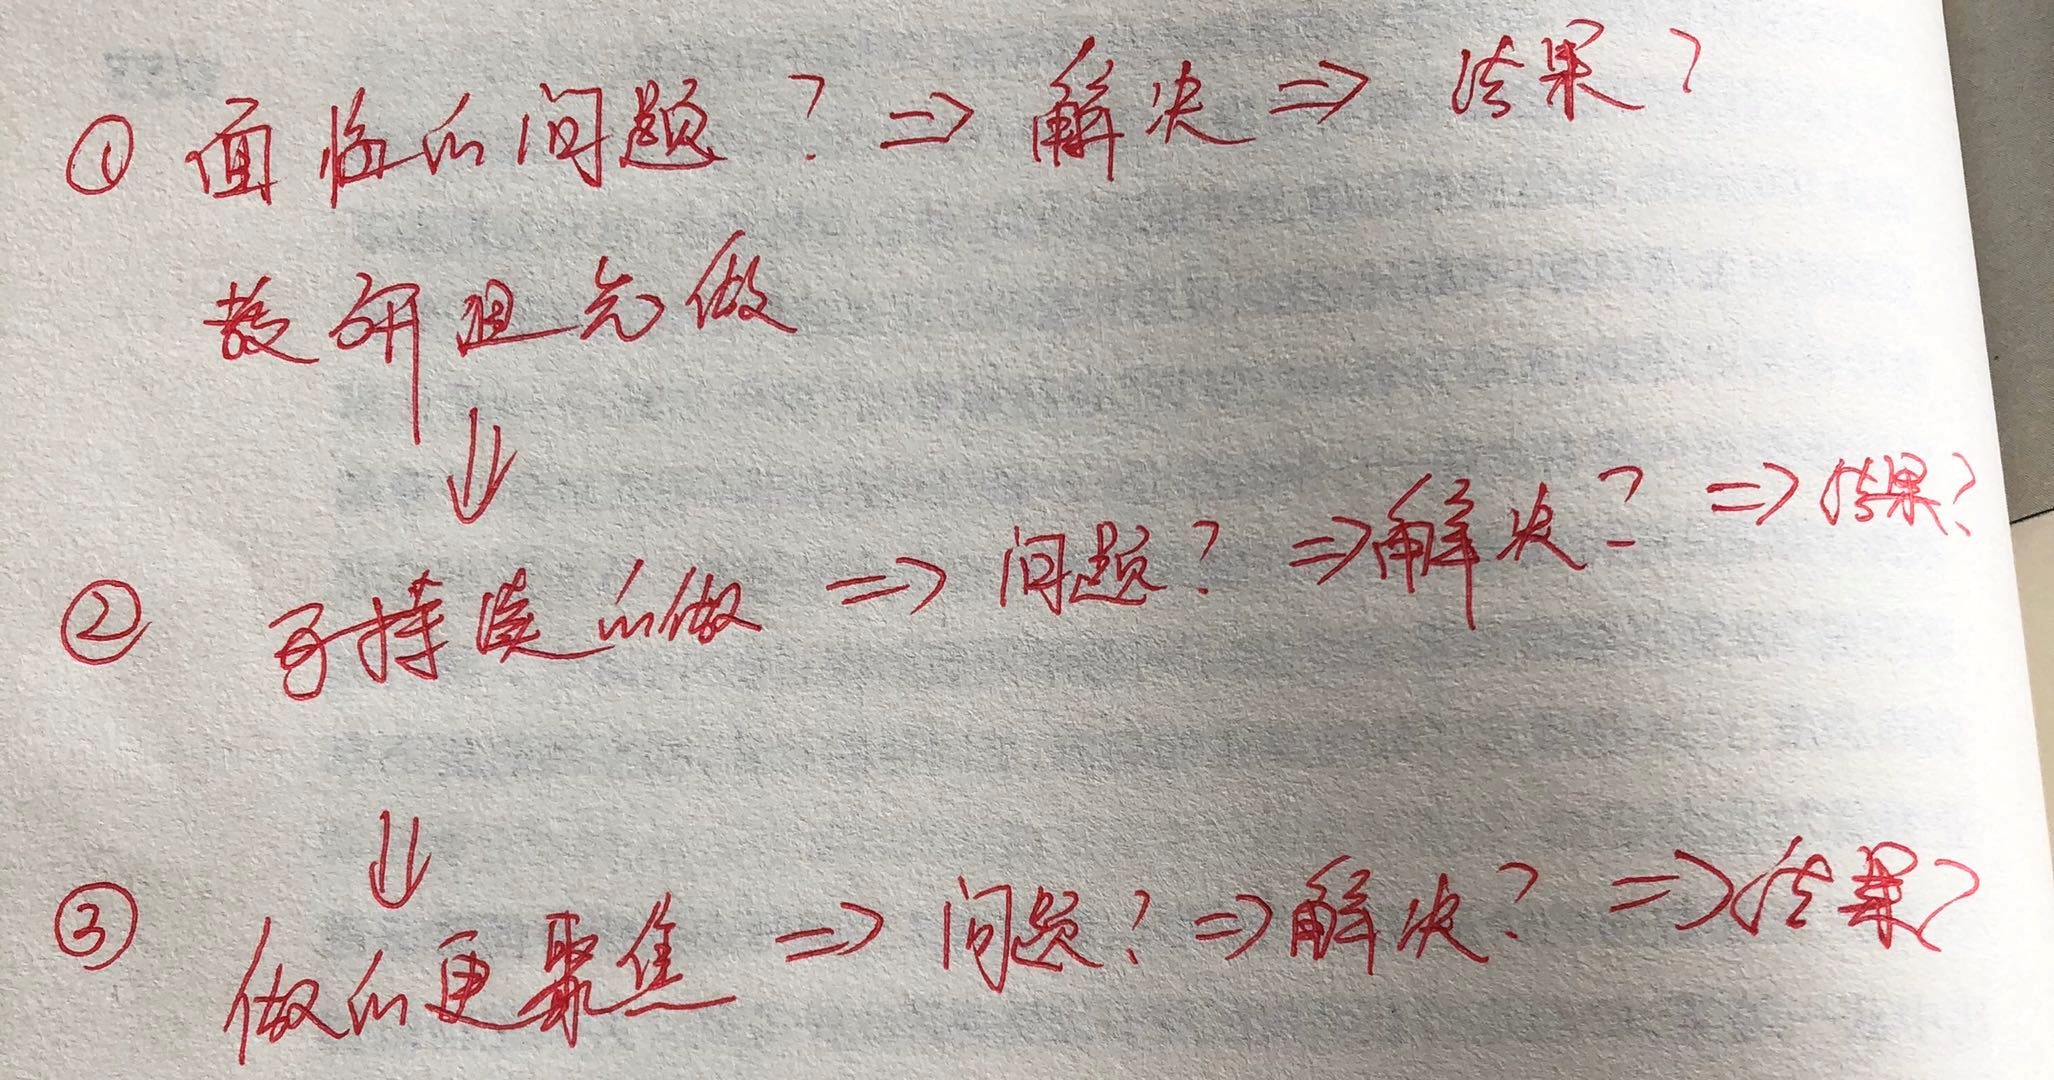 ① 面临的问题? ⇒ 解决 ⇒ 结果?
教研组先做
⇓
② 可持续的做 ⇒ 问题? ⇒ 解决? ⇒ 结果?
⇓
③ 做的更聚焦 ⇒ 问题? ⇒ 解决? ⇒ 结果?